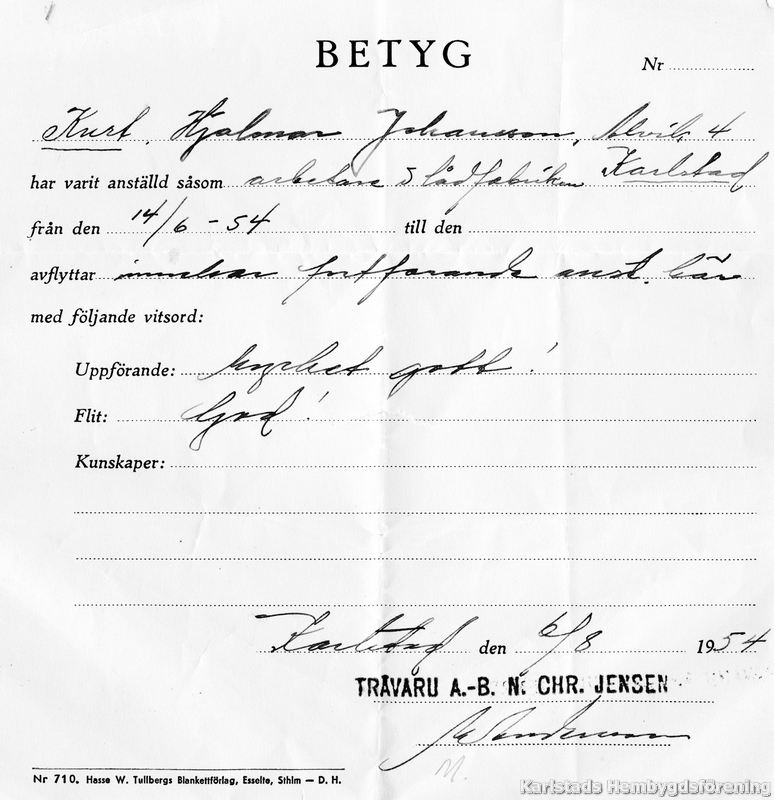 BETYG
Nr
Kurt Hjalmar Johansson, Alvik 4
har varit anställd såsom arbetare å lådfabriken Karlstad
från den 14/6 - 54 till den
avflyttar innehar fortfarande anst. här
med följande vitsord:
Uppförande: Mycket gott!
Flit: God!
Kunskaper:
Karlstad den 6/8 1954
TRÄVARU A.-B. N. CHR. JENSEN
Andersson
Nr 710. Hasse W. Tullbergs Blankettförlag, Esselte, Sthlm — D. H.
Karlstads Hembygdsförening